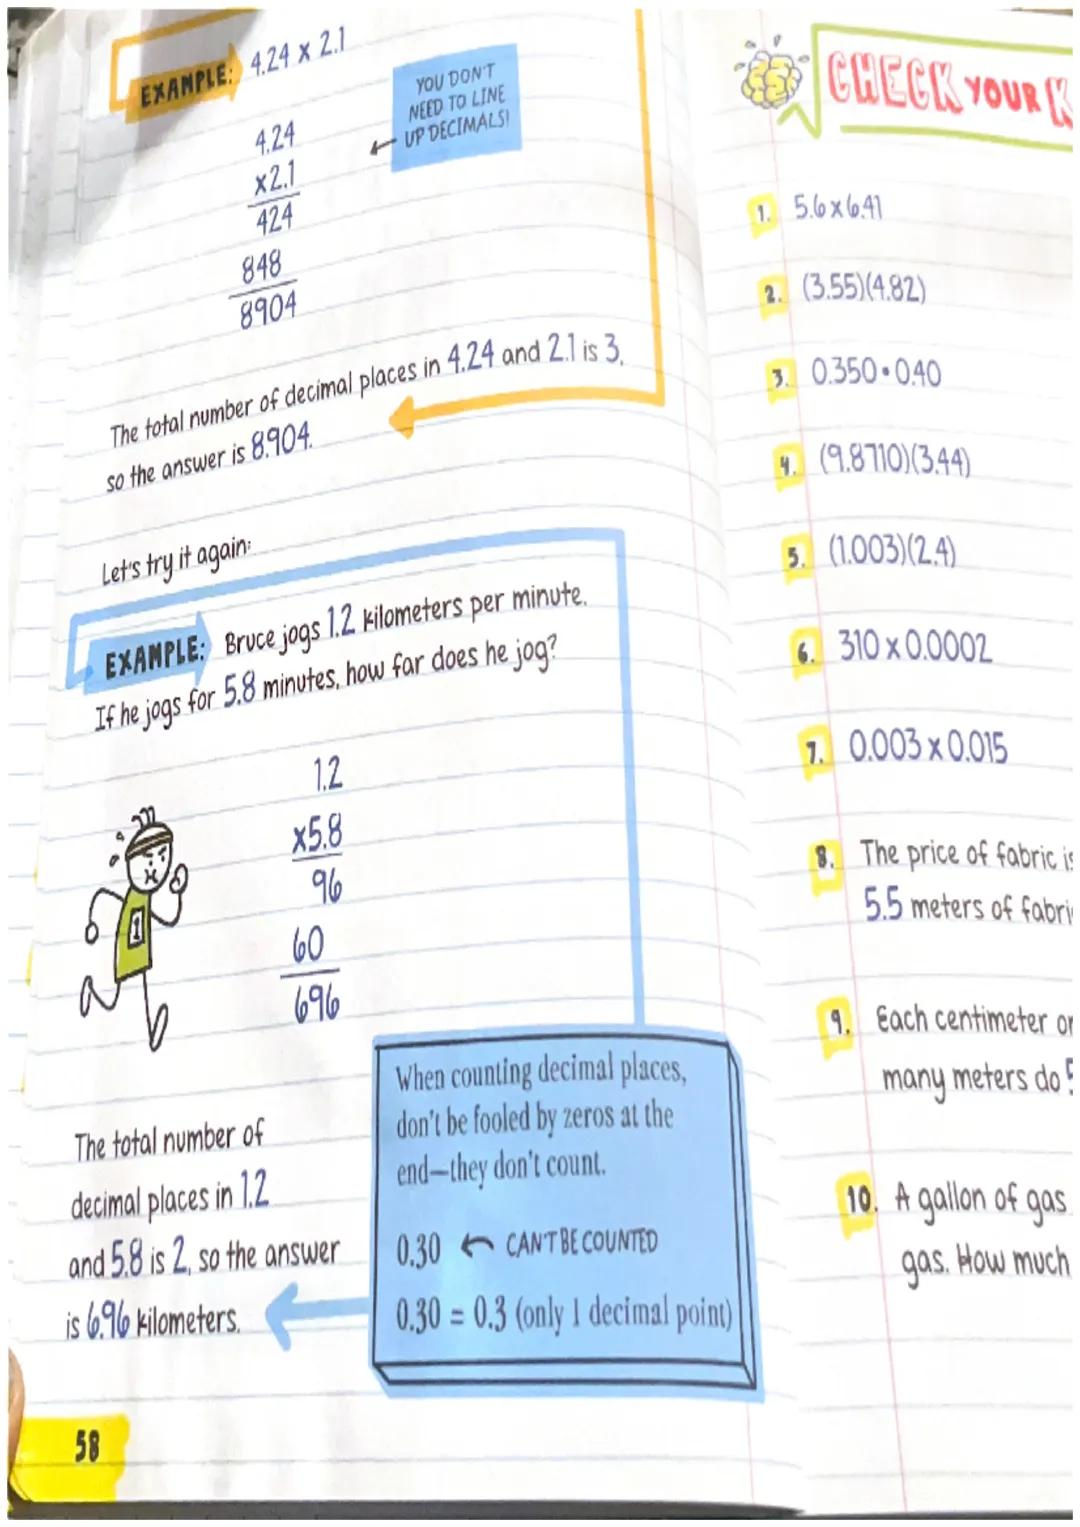 EXAMPLE: 4.24 x 2.1
YOU DON'T
NEED TO LINE
UP DECIMALS!
4.24
x2.1
424
848
8904
The total number of decimal places in 4.24 and 2.1 is 3,
so the answer is 8.904.
Let's try it again:
EXAMPLE: Bruce jogs 1.2 kilometers per minute.
If he jogs for 5.8 minutes, how far does he jog?
1.2
x5.8
96
60
696
1
The total number of
decimal places in 1.2
and 5.8 is 2, so the answer
is 6.96 kilometers.
When counting decimal places,
don't be fooled by zeros at the
end—they don't count.
0.30 ← CAN'T BE COUNTED
0.30 = 0.3 (only 1 decimal point)
58
CHECK YOUR K
1. 5.6 x 6.41
2. (3.55)(4.82)
3. 0.350 • 0.40
4. (9.8710)(3.44)
5. (1.003)(2.4)
6. 310 x 0.0002
7. 0.003 x 0.015
8. The price of fabric is
5.5 meters of fabri
9. Each centimeter on
many meters do 5
10. A gallon of gas
gas. How much